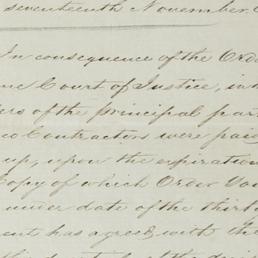 seventeenth November
In consequence of the Orde
me Court of Justice, in
ers of the principal part
co Contractors were paid
up, upon the expiration
Copy of which Order
under date of the thirty
ent has agreed, with the